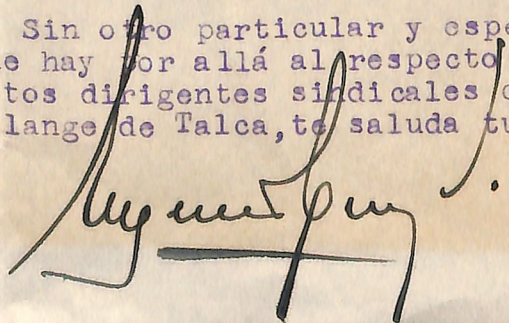 Sin otro particular y espe
e hay por allá al respecto
tos dirigentes sindicales
lange de Talca,te saluda tu